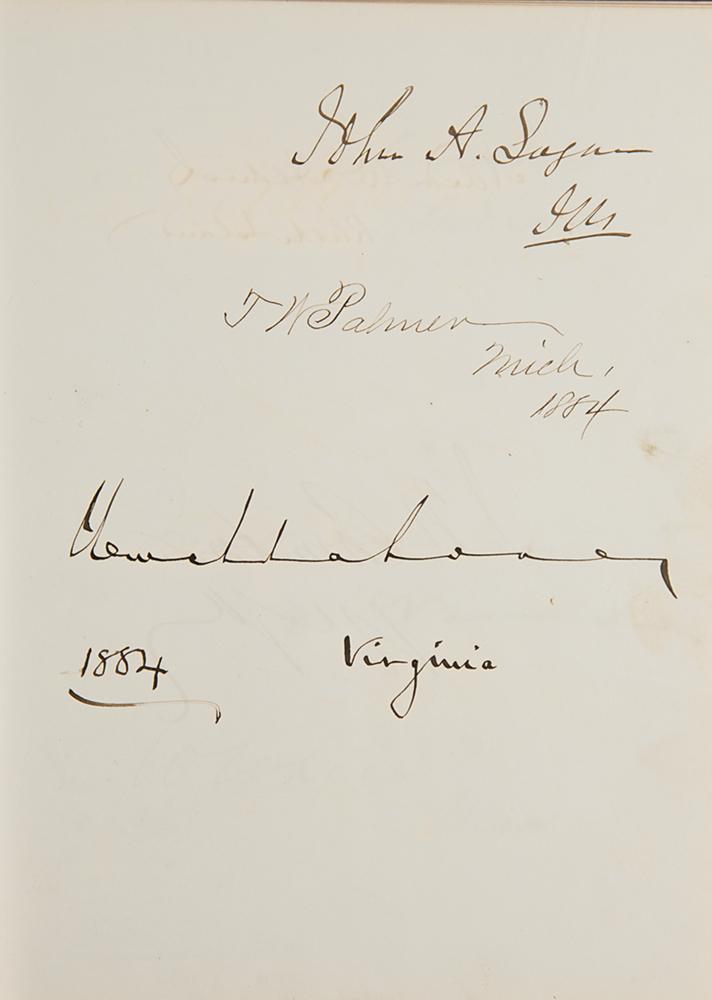 John A. Logan
Ills
T W Palmer
Mich.
1884
1884 Virginia